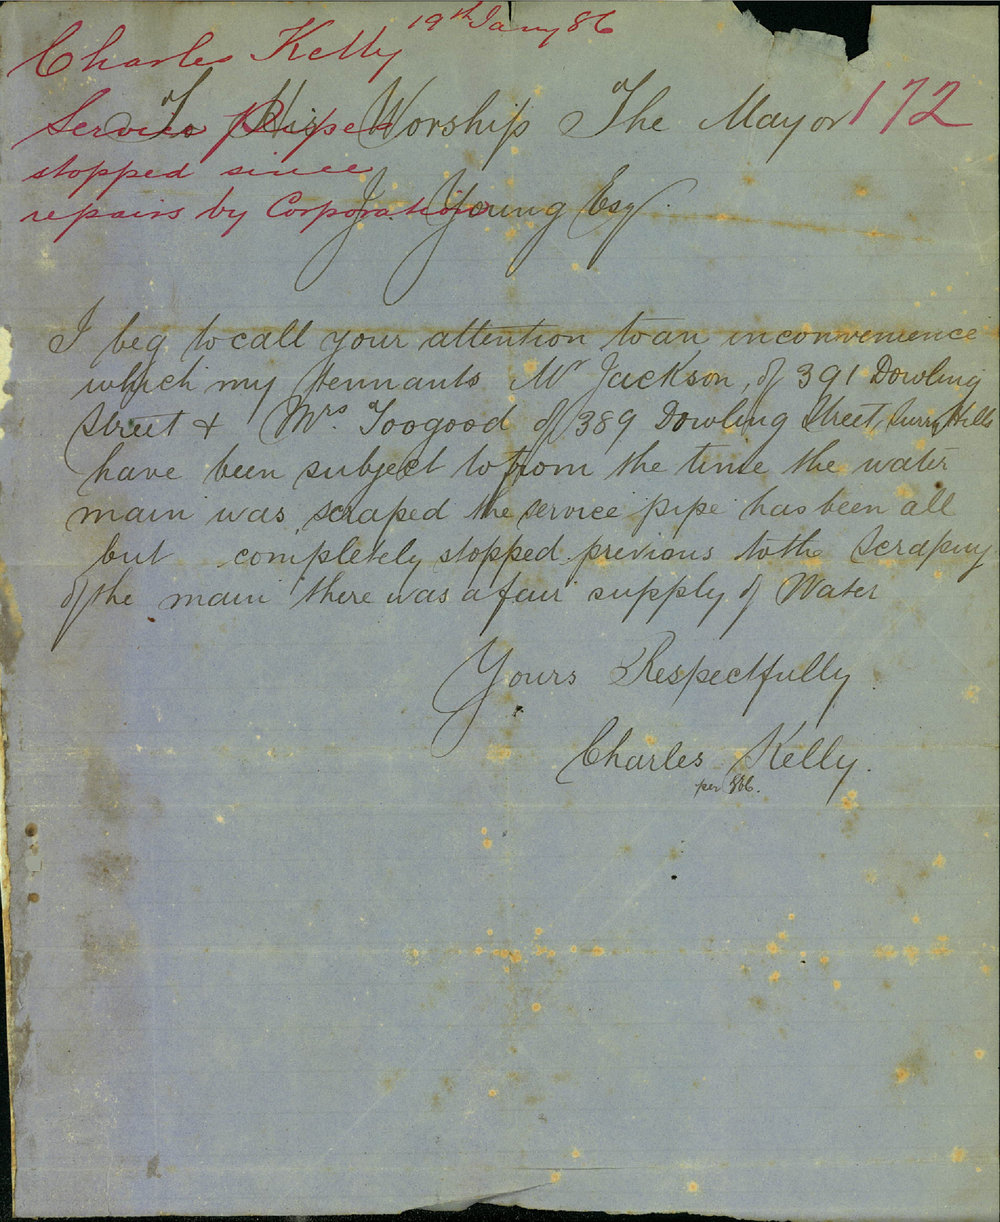 19th Jany 86
Charles Kelly
172
Service pipes
stopped since
repairs by Corporation
To His Worship The Mayor
J Young Esq
I beg to call your attention to an inconvenience
which my tennants Mr Jackson, of 391 Dowling
Street & Mrs Toogood of 389 Dowling Street, Surry Hills
have been subject to from the time the water
main was scraped the service pipe has been all
but completely stopped previous to the scraping
of the main there was a fair supply of Water
Yours Respectfully
Charles Kelly.
per